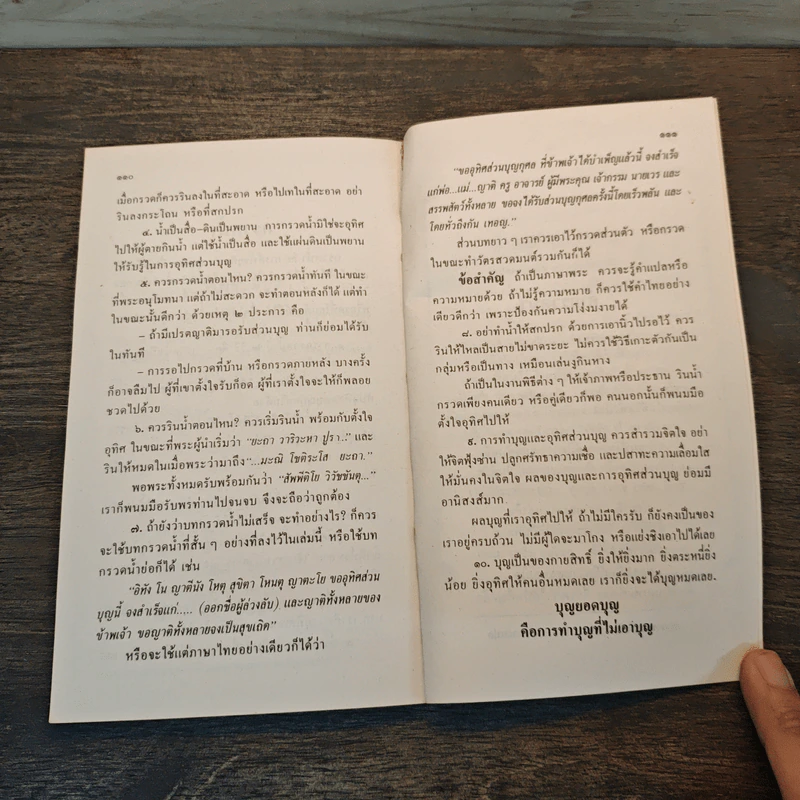 ๑๑๐
เมื่อกรวดก็ควรรินลงในที่สะอาด หรือไปเทในที่สะอาด อย่า
รินลงกระโถน หรือที่สกปรก
๔. น้ำเป็นสื่อ-ดินเป็นพยาน การกรวดน้ำมิใช่จะอุทิศ
ไปให้ผู้ตายกินน้ำ แต่ใช้น้ำเป็นสื่อ และใช้แผ่นดินเป็นพยาน
ให้รับรู้ในการอุทิศส่วนบุญ
๕. ควรกรวดน้ำตอนไหน? ควรกรวดน้ำทันที ในขณะ
ที่พระอนุโมทนา แต่ถ้าไม่สะดวก จะทำตอนหลังก็ได้ แต่ทำ
ในขณะนั้นดีกว่า ด้วยเหตุ ๒ ประการ คือ
- ถ้ามีเปรตญาติมารอรับส่วนบุญ ท่านก็ย่อมได้รับ
ในทันที
- การรอไปกรวดที่บ้าน หรือกรวดภายหลัง บางครั้ง
ก็อาจลืมไป ผู้ที่เขาตั้งใจรับก็อด ผู้ที่เราตั้งใจจะให้ก็พลอย
ชวดไปด้วย
๖. ควรรินน้ำตอนไหน? ควรเริ่มรินน้ำ พร้อมกับตั้งใจ
อุทิศ ในขณะที่พระผู้นำเริ่มว่า "ยะถา วาริวะหา ปูรา..." และ
รินให้หมดในเมื่อพระว่ามาถึง "...มะณิ โชติระโส ยะถา."
พอพระทั้งหมดรับพร้อมกันว่า "สัพพีติโย วิวัชชันตุ..."
เราก็พนมมือรับพรท่านไปจนจบ จึงจะถือว่าถูกต้อง
๗. ถ้ายังว่าบทกรวดน้ำไม่เสร็จ จะทำอย่างไร? ก็ควร
จะใช้บทกรวดน้ำที่สั้น ๆ อย่างที่ลงไว้ในเล่มนี้ หรือใช้บท
กรวดน้ำย่อก็ได้ เช่น
"อิทัง โน ญาตีนัง โหตุ สุขิตา โหนตุ ญาตะโย ขออุทิศส่วน
บุญนี้ จงสำเร็จแก่..... (ออกชื่อผู้ล่วงลับ) และญาติทั้งหลายของ
ข้าพเจ้า ขอญาติทั้งหลายจงเป็นสุขเถิด"
หรือจะใช้แต่ภาษาไทยอย่างเดียวก็ได้ว่า
๑๑๑
"ขออุทิศส่วนบุญกุศล ที่ข้าพเจ้าได้บำเพ็ญแล้วนี้ จงสำเร็จ
แก่พ่อ...แม่...ญาติ ครู อาจารย์ ผู้มีพระคุณ เจ้ากรรม นายเวร และ
สรรพสัตว์ทั้งหลาย ขอจงได้รับส่วนบุญกุศลครั้งนี้โดยเร็วพลัน และ
โดยทั่วถึงกัน เทอญ."
ส่วนบทยาว ๆ เราควรเอาไว้กรวดส่วนตัว หรือกรวด
ในขณะทำวัตรสวดมนต์รวมกันก็ได้
ข้อสำคัญ ถ้าเป็นภาษาพระ ควรจะรู้คำแปลหรือ
ความหมายด้วย ถ้าไม่รู้ความหมาย ก็ควรใช้คำไทยอย่าง
เดียวดีกว่า เพราะป้องกันความโง่งมงายได้
๘. อย่าทำน้ำให้สกปรก ด้วยการเอานิ้วไปรอไว้ ควร
รินให้ไหลเป็นสายไม่ขาดระยะ ไม่ควรใช้วิธีเกาะตัวกันเป็น
กลุ่มหรือเป็นทาง เหมือนเล่นงูกินหาง
ถ้าเป็นในงานพิธีต่าง ๆ ให้เจ้าภาพหรือประธาน รินน้ำ
กรวดเพียงคนเดียว หรือคู่เดียวก็พอ คนนอกนั้นก็พนมมือ
ตั้งใจอุทิศไปให้
๙. การทำบุญและอุทิศส่วนบุญ ควรสำรวมจิตใจ อย่า
ให้จิตฟุ้งซ่าน ปลูกศรัทธาความเชื่อ และปสาทะความเลื่อมใส
ให้มั่นคงในจิตใจ ผลของบุญและการอุทิศส่วนบุญ ย่อมมี
อานิสงส์มาก
ผลบุญที่เราอุทิศไปให้ ถ้าไม่มีใครรับ ก็ยังคงเป็นของ
เราอยู่ครบถ้วน ไม่มีผู้ใดจะมาโกง หรือแย่งชิงเอาไปได้เลย
๑๐. บุญเป็นของกายสิทธิ์ ยิ่งให้ยิ่งมาก ยิ่งตระหนี่ยิ่ง
น้อย ยิ่งอุทิศให้คนอื่นหมดเลย เราก็ยิ่งจะได้บุญหมดเลย.
บุญยอดบุญ
คือการทำบุญที่ไม่เอาบุญ